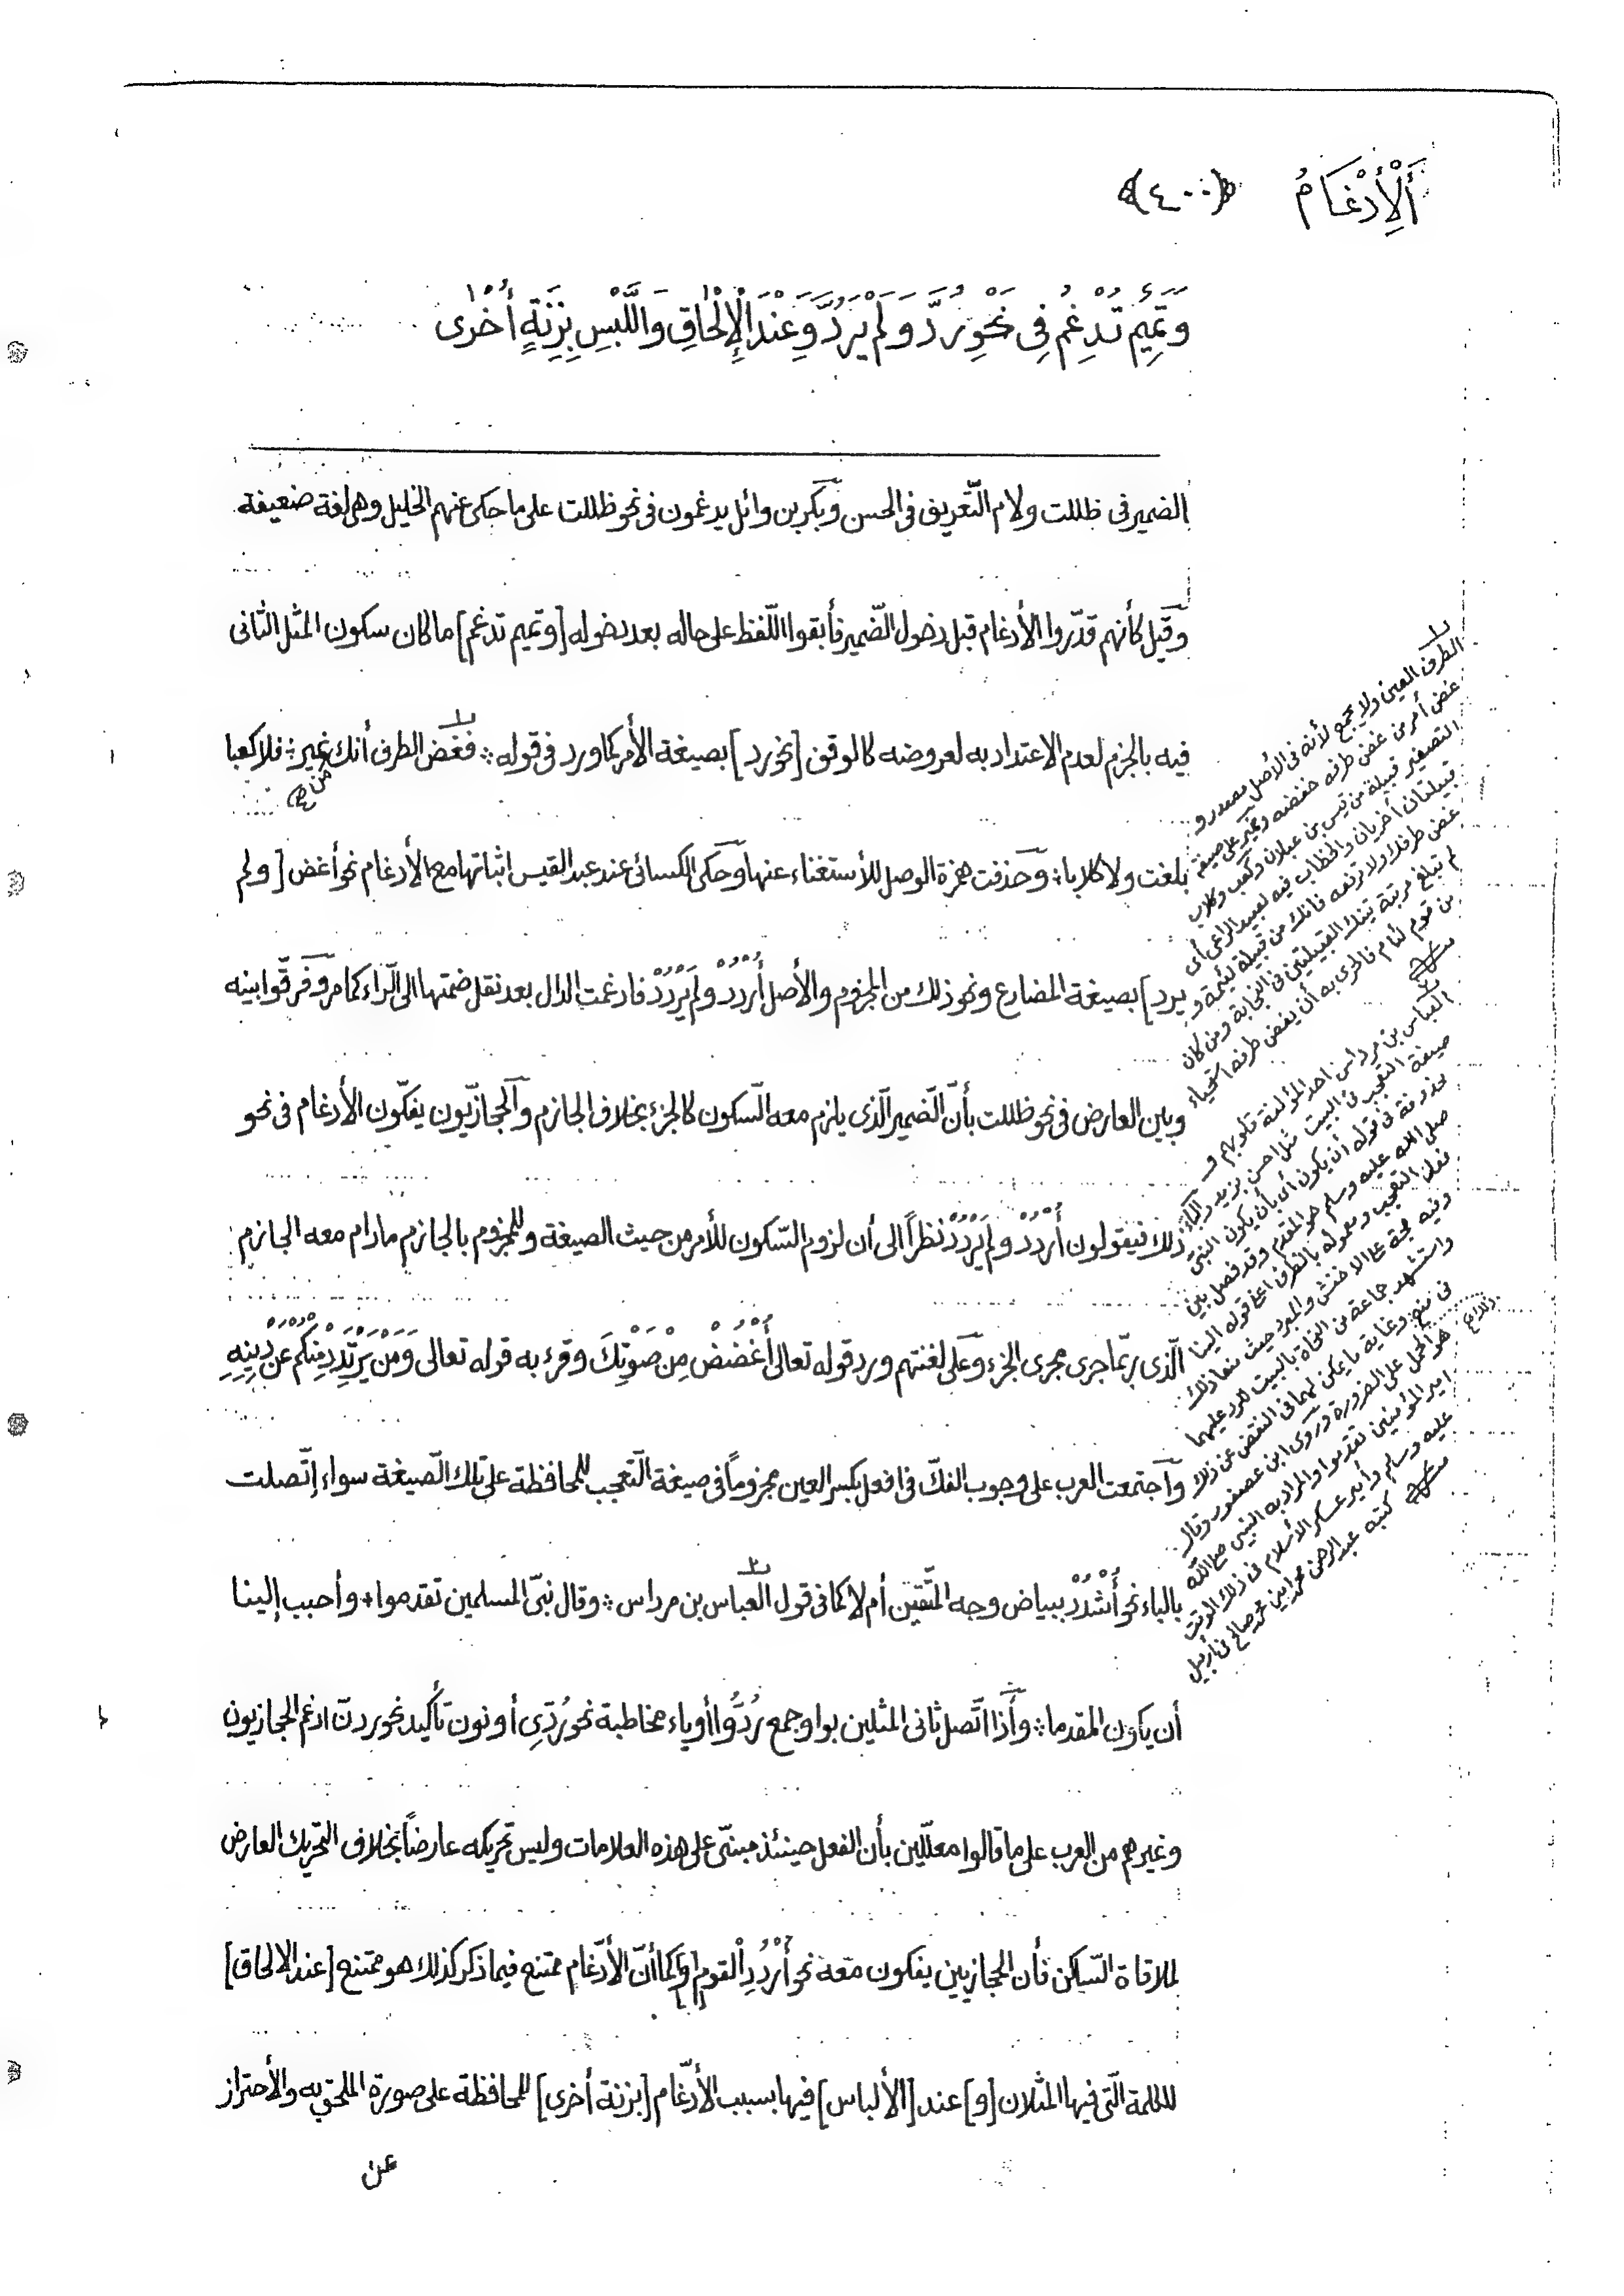 أَلْأِدْغَامُ ﴿٤٠٠﴾
وَتَمِيمُ تُدْغِمُ فِى نَحْوِ رُدَّ وَلَمْ يَرُدَّ وَعِنْدَ الْإِلْحَاقِ وَاللَّبْسِ بِزِنَةٍ أُخْرٰى
الضمير فى ظللت ولام التّعريف فى الحسن وبكر بن وائل يدغمون فى نحو ظللت على ما حكى عنهم الخليل وهى لغة ضعيفة
وقيل كأنهم قدّروا الأدغام قبل دخول الضّمير فأبقوا اللّفظ على حاله بعد دخوله [وتميم تدغم] ما كان سكون المثل الثانى
فيه بالجزم لعدم الاعتداد به لعروضه كالوقف [نحو رد] بصيغة الأمر كما ورد فى قوله ؞ فغض الطرف أنك من نمير ؞ فلا كعبا
بلغت ولا كلابا ؞ وحذفت همزة الوصل للأستغناء عنها وحكى الكسائى عند عبد القيس اثباتها مع الأدغام نحو أغض [ولم
يرد] بصيغة المضارع ونحو ذلك من المجزوم والأصل أُرْدُدْ ولم يَرْدُدْ فادغمت الدال بعد نقل ضمتها الى الرّاء كما مر وفرّقوا بينه
وبين العارض فى نحو ظللت بأنّ الضمير الّذى يلزم معه السّكون كالجزء بخلاف الجازم وآلحجازيّون يفكّون الأدغام فى نحو
ذلك فيقولون أُرْدُدْ ولم يَرْدُدْ نظراً الى أن لزوم السّكون للأمر من حيث الصيغة وللمجزوم بالجازم مادام معه الجازم
الّذى ربّما جرى مجرى الجزء وعلى لغتهم ورد قوله تعالى أُغْضُضْ مِنْ صَوْتِكَ وقرء به قوله تعالى وَمَنْ يَرْتَدِدْ مِنْكُمْ عَنْ دِينِهِ
وآجتمعت العرب على وجوب الفكّ فى افعل بكسر العين مجزوماً فى صيغة التّعجب للمحافظة على تلك الصّيغة سواء إتّصلت
بالباء نحو أُشْدُدْ ببياض وجه المتّقين أم لا كما فى قول العباس بن مرداس ؞ وقال نبىّ المسلمين تقدموا ؞ وأحبب إلينا
أن يكون المقدما ؞ وأذا اتّصل ثانى المثلين بواو جمع رُدُّوا أو ياء مخاطبة نحو رُدِّى أو نون تأكيد نحو ردنّ ادغم الحجازيون
وغيرهم من العرب على ما قالوا معلّلين بأن الفعل حينئذ مبنىّ على هذه العلامات وليس تحريكه عارضاً بخلاف التحريك العارض
لملاقاة السّاكن فأن الحجازيين يفكون معه نحو أُرْدُدِ الْقوم [و] كما أنّ الأدّغام ممتنع فيما ذكر كذلك هو ممتنع [عند الالحاق]
للكلمة الّتى فيها المثلان [و] عند [الألباس] فيها بسبب الأدّغام [بزنة أخرى] للمحافظة على صورة الملحق به والأحتراز
عن
الطرف العين ولا يجمع لأنه فى الأصل مصدر و
غض أمر من غض طرفه خفضه ونمير على صيغة
التصغير قبيلة من قيس بن عيلان وكعب وكلاب
قبيلتان أخريان والخطاب فيه لعبيد الراعى أى
غض طرفك ولا ترفعه فانك من قبيلة لئيمة و
لم تبلغ مرتبة تينك القبيلتين فى النجابة ومن كان
من قوم لئام فالحرى به أن يغض طرفه استحياء
العباس بن مرداس احد المؤلفة قلوبهم و
صيغة التعجب فى البيت مثل احسن بزيد والباء
محذوفة فى قوله أن يكون أى بأن يكون النبى
صلى الله عليه وسلم هو المقدم وقد فصل بين
فعل التعجب ومعموله بالظرف اعنى قوله الينا
وفيه حجة على الاخفش والمبرد حيث منعا ذلك
واستشهد جماعة من النحاة بالبيت للرد عليهما
فى منع ذلك وغاية ما يمكن لهما فى التفصى عن ذلك
هو الحمل على الضرورة وروى ابن عصفور وقال
امير المؤمنين تقدموا والمراد به النبى صلى الله
عليه وسلم وأمير عسكر الأسلام فى ذلك الوقت
كتبه عبد الرحمن محمد أمين محمد صالح فى أربيل